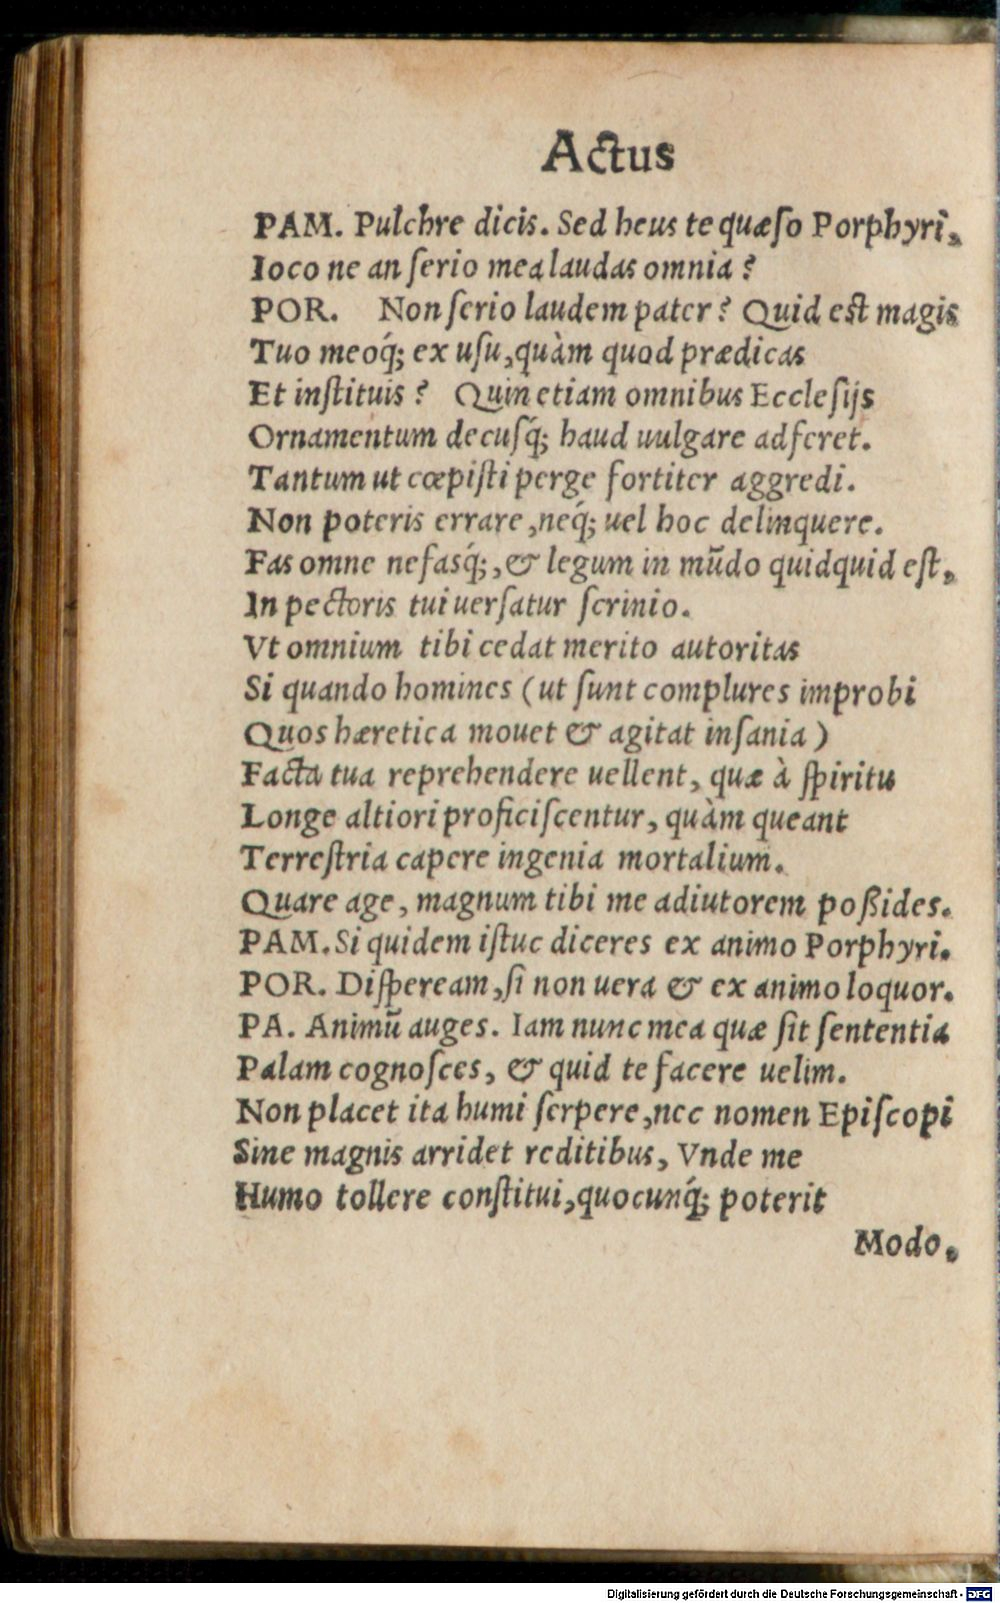 Actus
PAM. Pulchre dicis. Sed heus te quæſo Porphyri,
Ioco ne an ſerio mea laudas omnia?
POR. Non ſerio laudem pater? Quid est magis
Tuo meoq́; ex uſu, quàm quod prædicas
Et inſtituis? Quin etiam omnibus Eccleſijs
Ornamentum decuſq́; haud uulgare adferet.
Tantum ut cœpiſti perge fortiter aggredi.
Non poteris errare, neq́; uel hoc delinquere.
Fas omne nefasq́;, & legum in mūdo quidquid eſt,
In pectoris tui uerſatur ſcrinio.
Vt omnium tibi cedat merito autoritas
Si quando homines (ut ſunt complures improbi
Quos hæretica mouet & agitat inſania)
Facta tua reprehendere uellent, quæ à ſpiritu
Longe altiori proficiſcentur, quàm queant
Terreſtria capere ingenia mortalium.
Quare age, magnum tibi me adiutorem poßides.
PAM. Si quidem iſtuc diceres ex animo Porphyri.
POR. Diſpeream, ſi non uera & ex animo loquor.
PA. Animū auges. Iam nunc mea quæ ſit ſententia
Palam cognoſces, & quid te facere uelim.
Non placet ita humi ſerpere, nec nomen Epiſcopi
Sine magnis arridet reditibus, Vnde me
Humo tollere conſtitui, quocunq́; poterit
Modo.
Digitalisierung gefördert durch die Deutsche Forschungsgemeinschaft - DFG